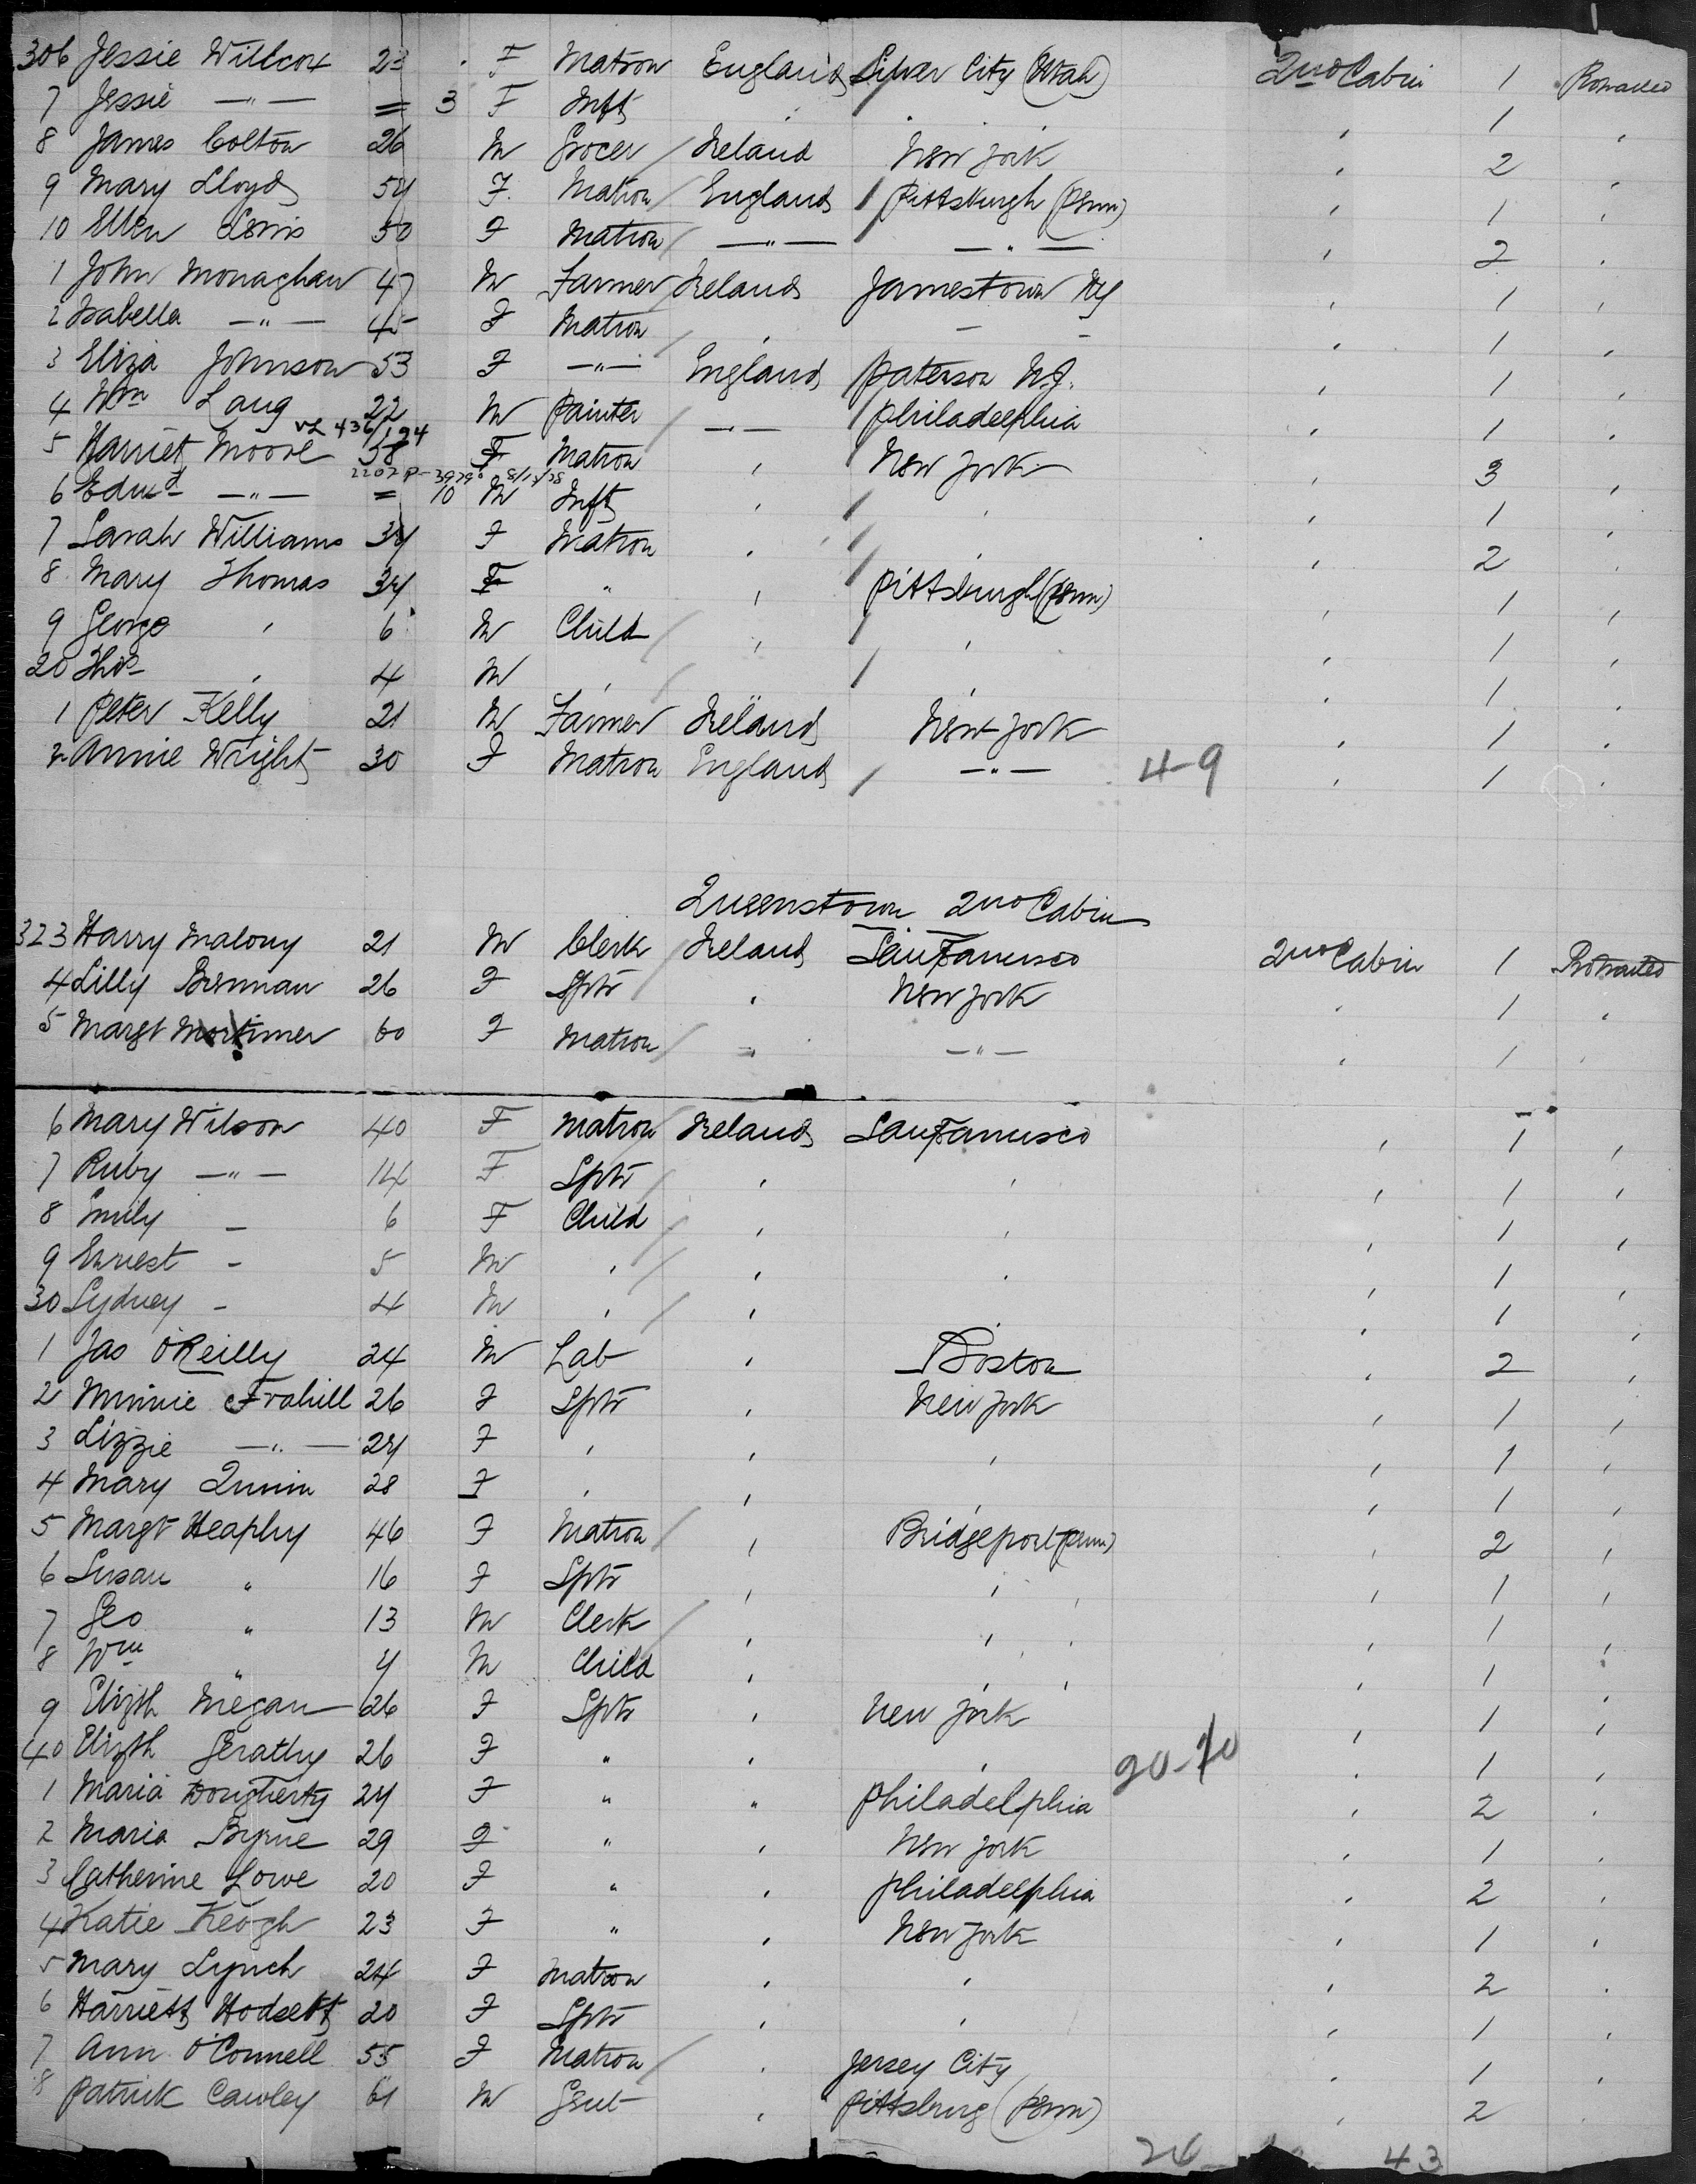 306 Jessie Willcox 23 F Matron England Silver City (Utah) 2nd Cabin 1 Protracted
7 Jessie —"— = 3 F Inft 1
8 James Colton 26 M Grocer / Ireland New York 2
9 Mary Lloyd 54 F. Matron / England / Pittsburgh (Penn) 1
10 Ellen Lewis 50 F Matron / —"— —"— 2
1 John Monaghan 47 M Farmer / Ireland Jamestown NY 1
2 Isabella —"— 45 F Matron / , — — 1
3 Eliza Johnson 53 F —"— England / Paterson N.J. 1
4 Wm Laug 22 M Painter / —"— / Philadelphia 1
VL 436/194
5 Harriet Moore 38 F Matron , / New York 3
2207 P- 39796 8/13/38
6 Edwd —"— = 10 M Inft , / , 1
7 Sarah Williams 34 F Matron , / , 2
8 Mary Thomas 34 F " , / Pittsburgh (Penn) 1
9 George , 6 M Child / , / , 1
20 Thos , 4 M , / / , 1
1 Peter Kelly 21 M Farmer Ireland New York 1
2 Annie Wright 30 F Matron England / —"— 4-9 1
Queenstown 2nd Cabin
323 Harry Malony 21 M Clerk Ireland San Francisco 2nd Cabin 1 Protracted
4 Lilly Brennan 26 F Sptr , New York 1
5 Margt Mortimer 60 F Matron / " —"— 1
6 Mary Wilson 40 F Matron / Ireland San Francisco 1
7 Ruby —"— 14 F Sptr / , , 1
8 Emily — 6 F Child / , , 1
9 Ernest - 5 M , / , , 1
30 Sydney - 4 M , / , , 1
1 Jas O'Reilly 24 M Lab , Boston 2
2 Minnie Frahill 26 F Sptr , New York 1
3 Lizzie —"— 24 F , , , 1
4 Mary Quinn 28 F , , , 1
5 Margt Heaphy 46 F Matron / , Bridgeport (Penn) 2
6 Susan " 16 F Sptr , , 1
7 Geo " 13 M Clerk / , , 1
8 Wm " 4 M Child , , 1
9 Elizth Megan 26 F Sptr , New York 1
40 Elizth Gerathy 26 F " , , 20-10 1
1 Maria Dougherty 24 F " " Philadelphia 2
2 Maria Byrne 29 F " , New York 1
3 Catherine Lowe 20 F " , Philadelphia 2
4 Katie Keogh 23 F " , New York 1
5 Mary Lynch 24 F Matron , , 2
6 Harriett Hodsett 20 F Sptr , , 1
7 Ann O'Connell 55 F Matron / , Jersey City 1
8 Patrick Cawley 61 M Gent , Pittsburg (Penn) 2
43